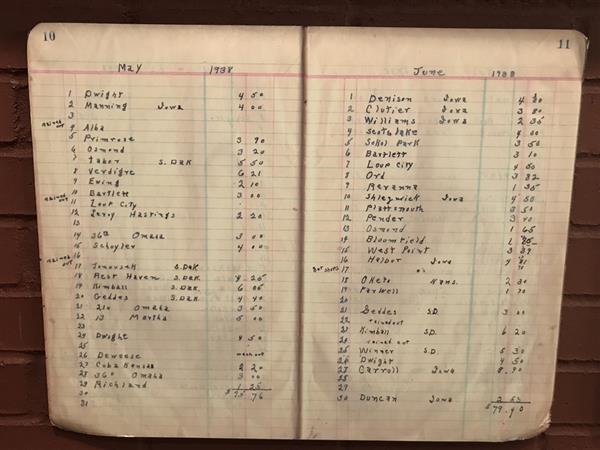 10
May 1938
1 Dwight 4 50
2 Manning Iowa 4 00
3
rained out 4 Alba
5 Primrose 3 90
6 Osmond 3 20
7 Tabor S. Dak 5 50
8 Verdigre 6 21
9 Ewing 2 10
10 Bartlett 3 00
rained out 11 Loup City
12 Leroy Hastings 2 20
13
14 36th Omaha 3 00
15 Schuyler 4 00
16
rained out 17 S. Dak
18 Best Haven S. Dak 4 25
19 Kimball S. Dak 6 05
20 Geddes S. Dak 4 40
21 Omaha 3 50
22 13 Martha 5 00
23
24 Dwight 4 50
25
26 Deweese wash out
27 Cuba Kansas 2 20
28 36th Omaha 3 00
29 Richland 1 25
30 $ 75.76
31
11
June 1938
1 Denison Iowa 4 20
2 Clutier Iowa 3 80
3 Williams Iowa 2 35
4 4 00
5 Sokol Park 3 50
6 Bartlett 3 10
7 Loup City 4 50
8 Ord 3 82
9 Ravanna 1 35
10 Iowa 4 50
11 Plattsmouth 3 50
12 Pender 3 40
13 Osmond 1 65
14 Bloomfield 1 85
15 West Point 3 39
16 Harbor Iowa 4 81
17
18 Oketo Kans. 2 30
19 Farwell 1 90
20
21 Geddes S.D. 3 00
22 rained out
23 Kimball S.D. 6 20
24 rained out
25 Winner S.D. 5 30
26 Dwight 4 50
27 Carroll Iowa 8.90
28
29
30 Duncan Iowa
$ 79.40